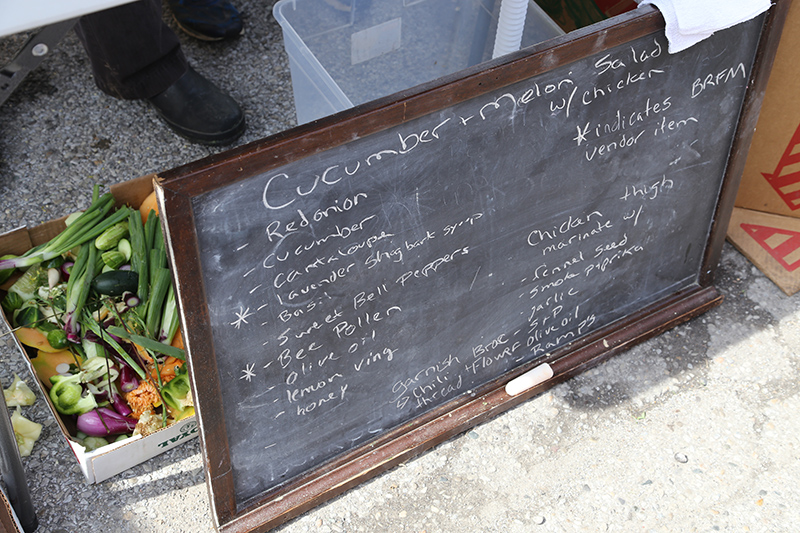 Cucumber + Melon Salad
w/ chicken
* indicates BRFM
vendor item
- Red onion
- Cucumber
- Cantaloupe
- lavender Shagbark syrup
* - Basil
- Sweet Bell Peppers
- Bee Pollen
* - Olive oil
- lemon
- honey
Chicken thigh
marinate w/
- fennel seed
- smoke paprika
- garlic
- S+P
- olive oil
- Ramps
garnish
& chili
thread + Flower